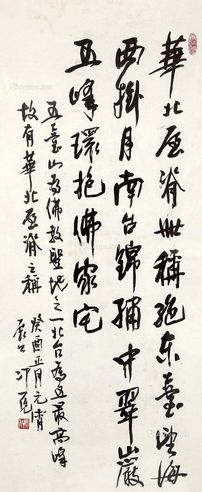 華北屋脊世稱絕東臺望海
西掛月南台錦繡中翠巖
五峰環抱佛家宅
五臺山為佛教聖地之一北台為五最高峰
故有華北屋脊之稱
癸酉正月元宵